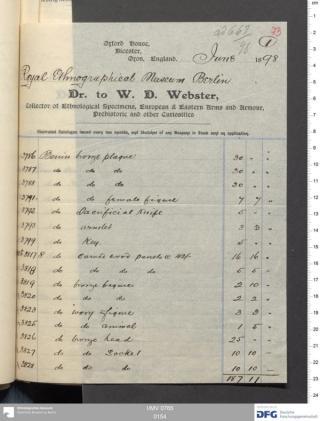 Oxford House,
Bicester,
Oxon, England.
June 1898
Royal Ethnographical Museum Berlin.
Dr. to W. D. Webster,
Collector of Ethnological Specimens, European & Eastern Arms and Armour,
Prehistoric and other Curiosities
Illustrated Catalogue issued every two months, and Sketches of any Weapons in Stock sent on application.
3786 Benin bronze plaque 30 - -
3787 do do do 30 - -
3788 do do do 30 - -
3791 do do female figure 7 7 -
3792 do Sacrificial knife 5 - -
3797 do armlet 3 3 -
3799 do Key 5 - -
do Carved wood panels 16 16 -
3818 do do do do 5 5 -
3819 do bronze figure 2 10 -
3820 do do do 2 2 -
3823 do ivory figure 3 3 -
3825 do do animal 1 5 -
3826 do bronze head 25 - -
3827 do do Socket 10 10 -
3828 do do do 10 10 -
187 11
UMV 0765
0154
DFG Deutsche
Forschungsgemeinschaft